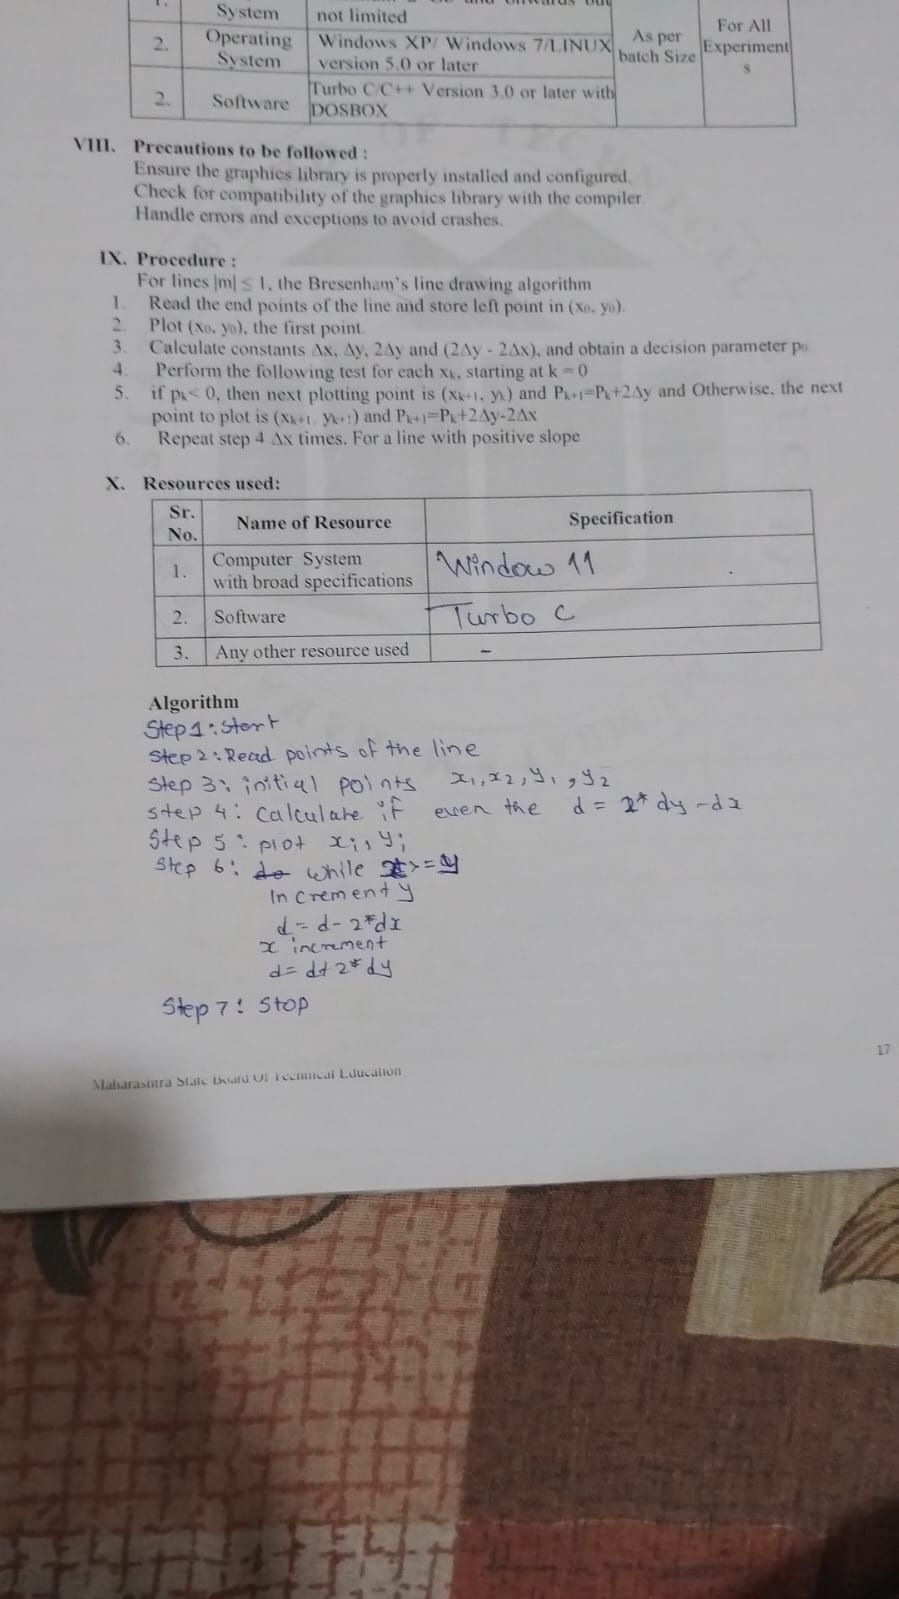 System not limited
2. Operating System Windows XP/ Windows 7/LINUX version 5.0 or later As per batch Size For All Experiments
2. Software Turbo C/C++ Version 3.0 or later with DOSBOX
VIII. Precautions to be followed :
Ensure the graphics library is properly installed and configured.
Check for compatibility of the graphics library with the compiler.
Handle errors and exceptions to avoid crashes.
IX. Procedure :
For lines |m| ≤ 1, the Bresenham's line drawing algorithm
1. Read the end points of the line and store left point in (x₀, y₀).
2. Plot (x₀, y₀), the first point.
3. Calculate constants Δx, Δy, 2Δy and (2Δy - 2Δx), and obtain a decision parameter p₀
4. Perform the following test for each xₖ, starting at k = 0
5. if pₖ< 0, then next plotting point is (xₖ₊₁, yₖ) and Pₖ₊₁=Pₖ+2Δy and Otherwise, the next
point to plot is (xₖ₊₁, yₖ₊₁) and Pₖ₊₁=Pₖ+2Δy-2Δx
6. Repeat step 4 Δx times. For a line with positive slope
X. Resources used:
Sr. No. Name of Resource Specification
1. Computer System with broad specifications Window 11
2. Software Turbo C
3. Any other resource used -
Algorithm
Step 1: Start
Step 2: Read points of the line
Step 3: initial points x₁, x₂, y₁, y₂
Step 4: Calculate if even the d = 2* dy - dx
Step 5: plot xᵢ, yᵢ
Step 6: do while x>=y
Increment y
d = d - 2*dx
x increment
d = d+2*dy
Step 7: Stop
17
Maharashtra State Board Of Technical Education